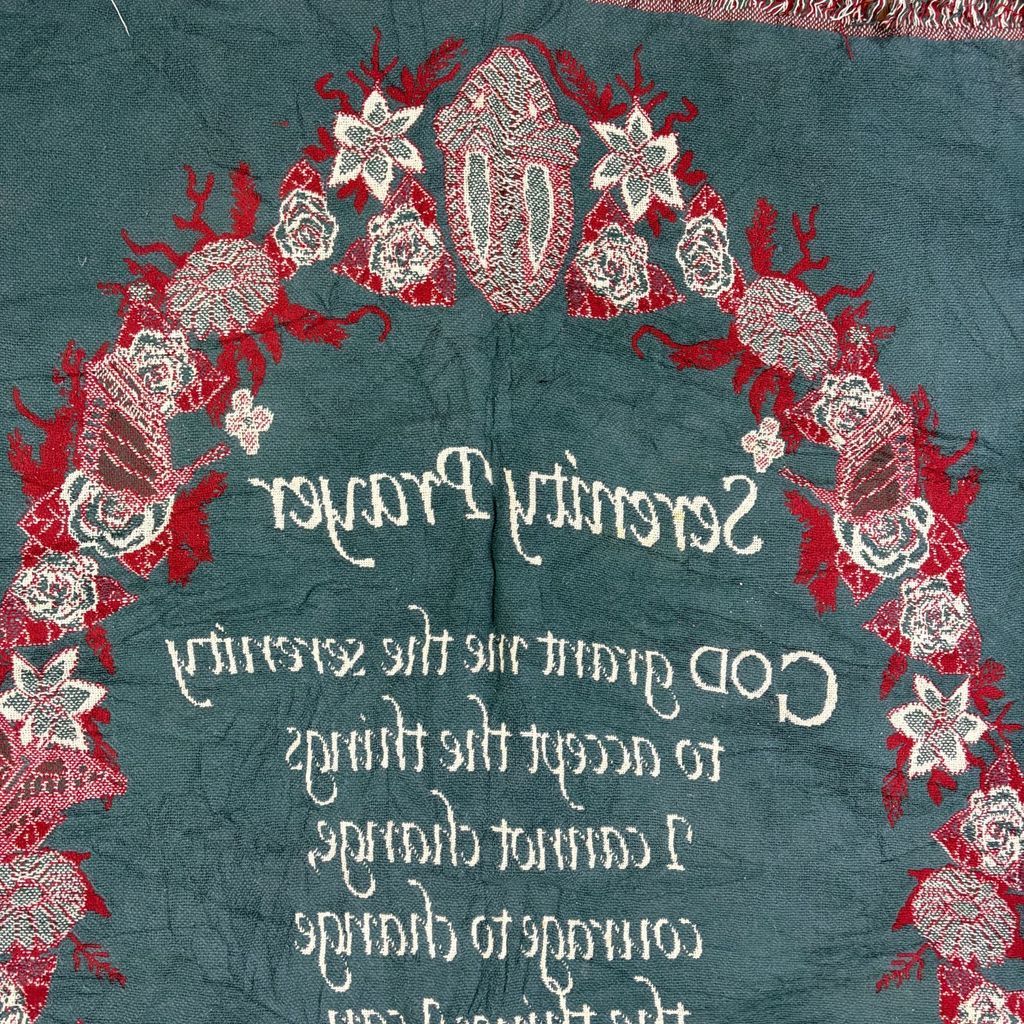 Serenity Prayer
GOD grant me the serenity
to accept the things
I cannot change,
courage to change
the things I can